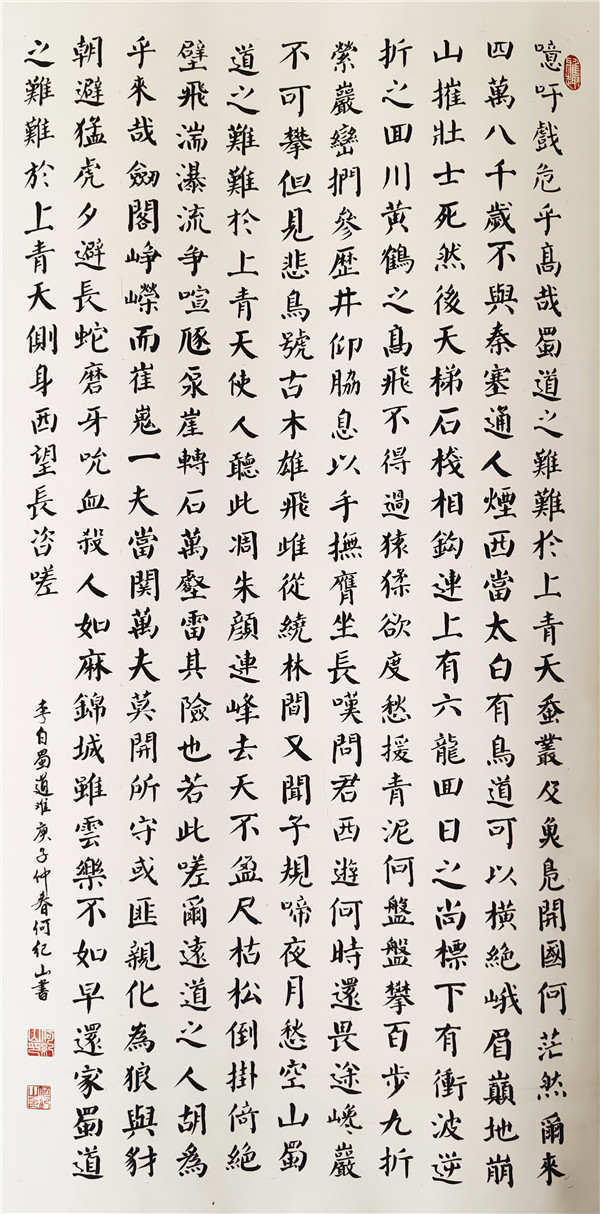 噫吁戲危乎高哉蜀道之難難於上青天蚕叢及魚鳧開國何茫然爾來
四萬八千歲不與秦塞通人煙西當太白有鳥道可以橫絕峨眉巔地崩
山摧壯士死然後天梯石棧相鈎連上有六龍回日之尚標下有衝波逆
折之回川黃鶴之高飛不得過猿猱欲度愁援青泥何盤盤攀百步九折
縈巖巒捫參歷井仰脇息以手撫膺坐長嘆問君西遊何時還畏途巉巖
不可攀但見悲鳥號古木雄飛雌從繞林間又聞子規啼夜月愁空山蜀
道之難難於上青天使人聽此凋朱顏連峰去天不盈尺枯松倒掛倚絕
壁飛湍瀑流爭喧豗砯崖轉石萬壑雷其險也若此嗟爾遠道之人胡為
乎來哉劍閣崢嶸而崔嵬一夫當関萬夫莫開所守或匪親化為狼與豺
朝避猛虎夕避長蛇磨牙吮血殺人如麻錦城雖雲樂不如早還家蜀道
之難難於上青天側身西望長咨嗟
李白蜀道难庚子仲春何纪山書